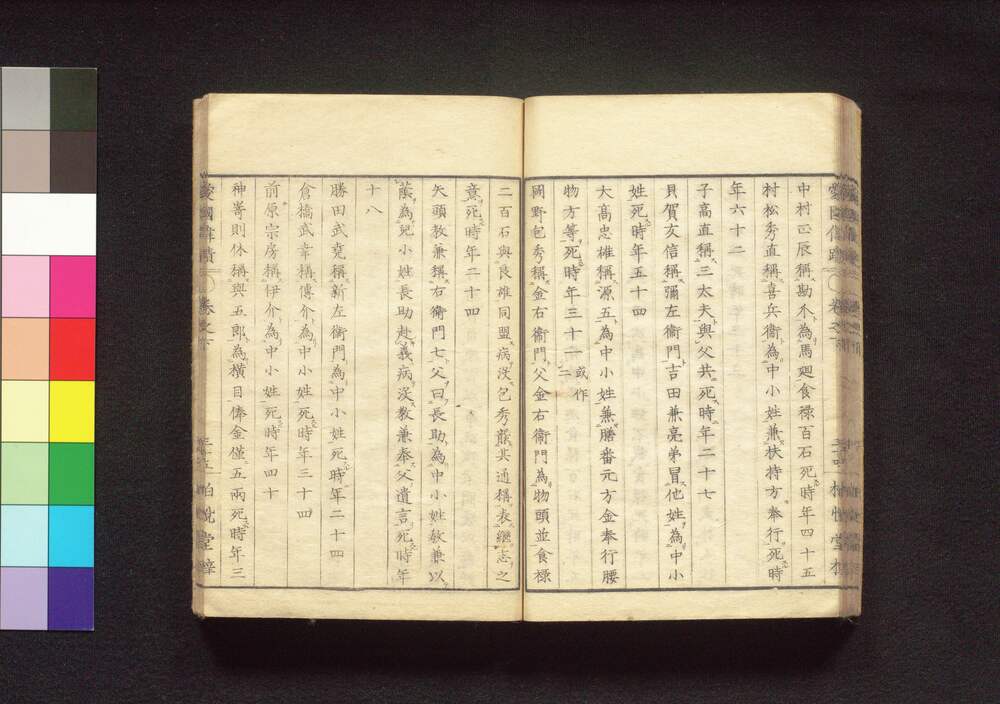 中村正辰稱勘介為馬廻食祿百石死時年四十五
村松秀直稱喜兵衛為中小姓兼扶持方奉行死時
年六十二
子高直稱三太夫與父共死時年二十七
貝賀友信稱彌左衛門吉田兼亮弟冒他姓為中小
姓死時年五十四
大高忠雄稱源五為中小姓兼膳番元方金奉行腰
物方等死時年三十一或作二
岡野包秀稱金右衛門父金右衛門為物頭並食祿
二百石與良雄同盟病沒包秀襲其通稱表繼志之
意死時年二十四
矢頭教兼稱右衛門七父曰長助為中小姓教兼以
蔭為兒小姓長助赴義病沒教兼奉父遺言死時年
十八
勝田武堯稱新左衛門為中小姓死時年二十四
倉橋武幸稱傳介為中小姓死時年三十四
前原宗房稱伊介為中小姓死時年四十
神嵜則休稱與五郎為橫目俸金僅五兩死時年三
愛國偉績
卷之下
三十五